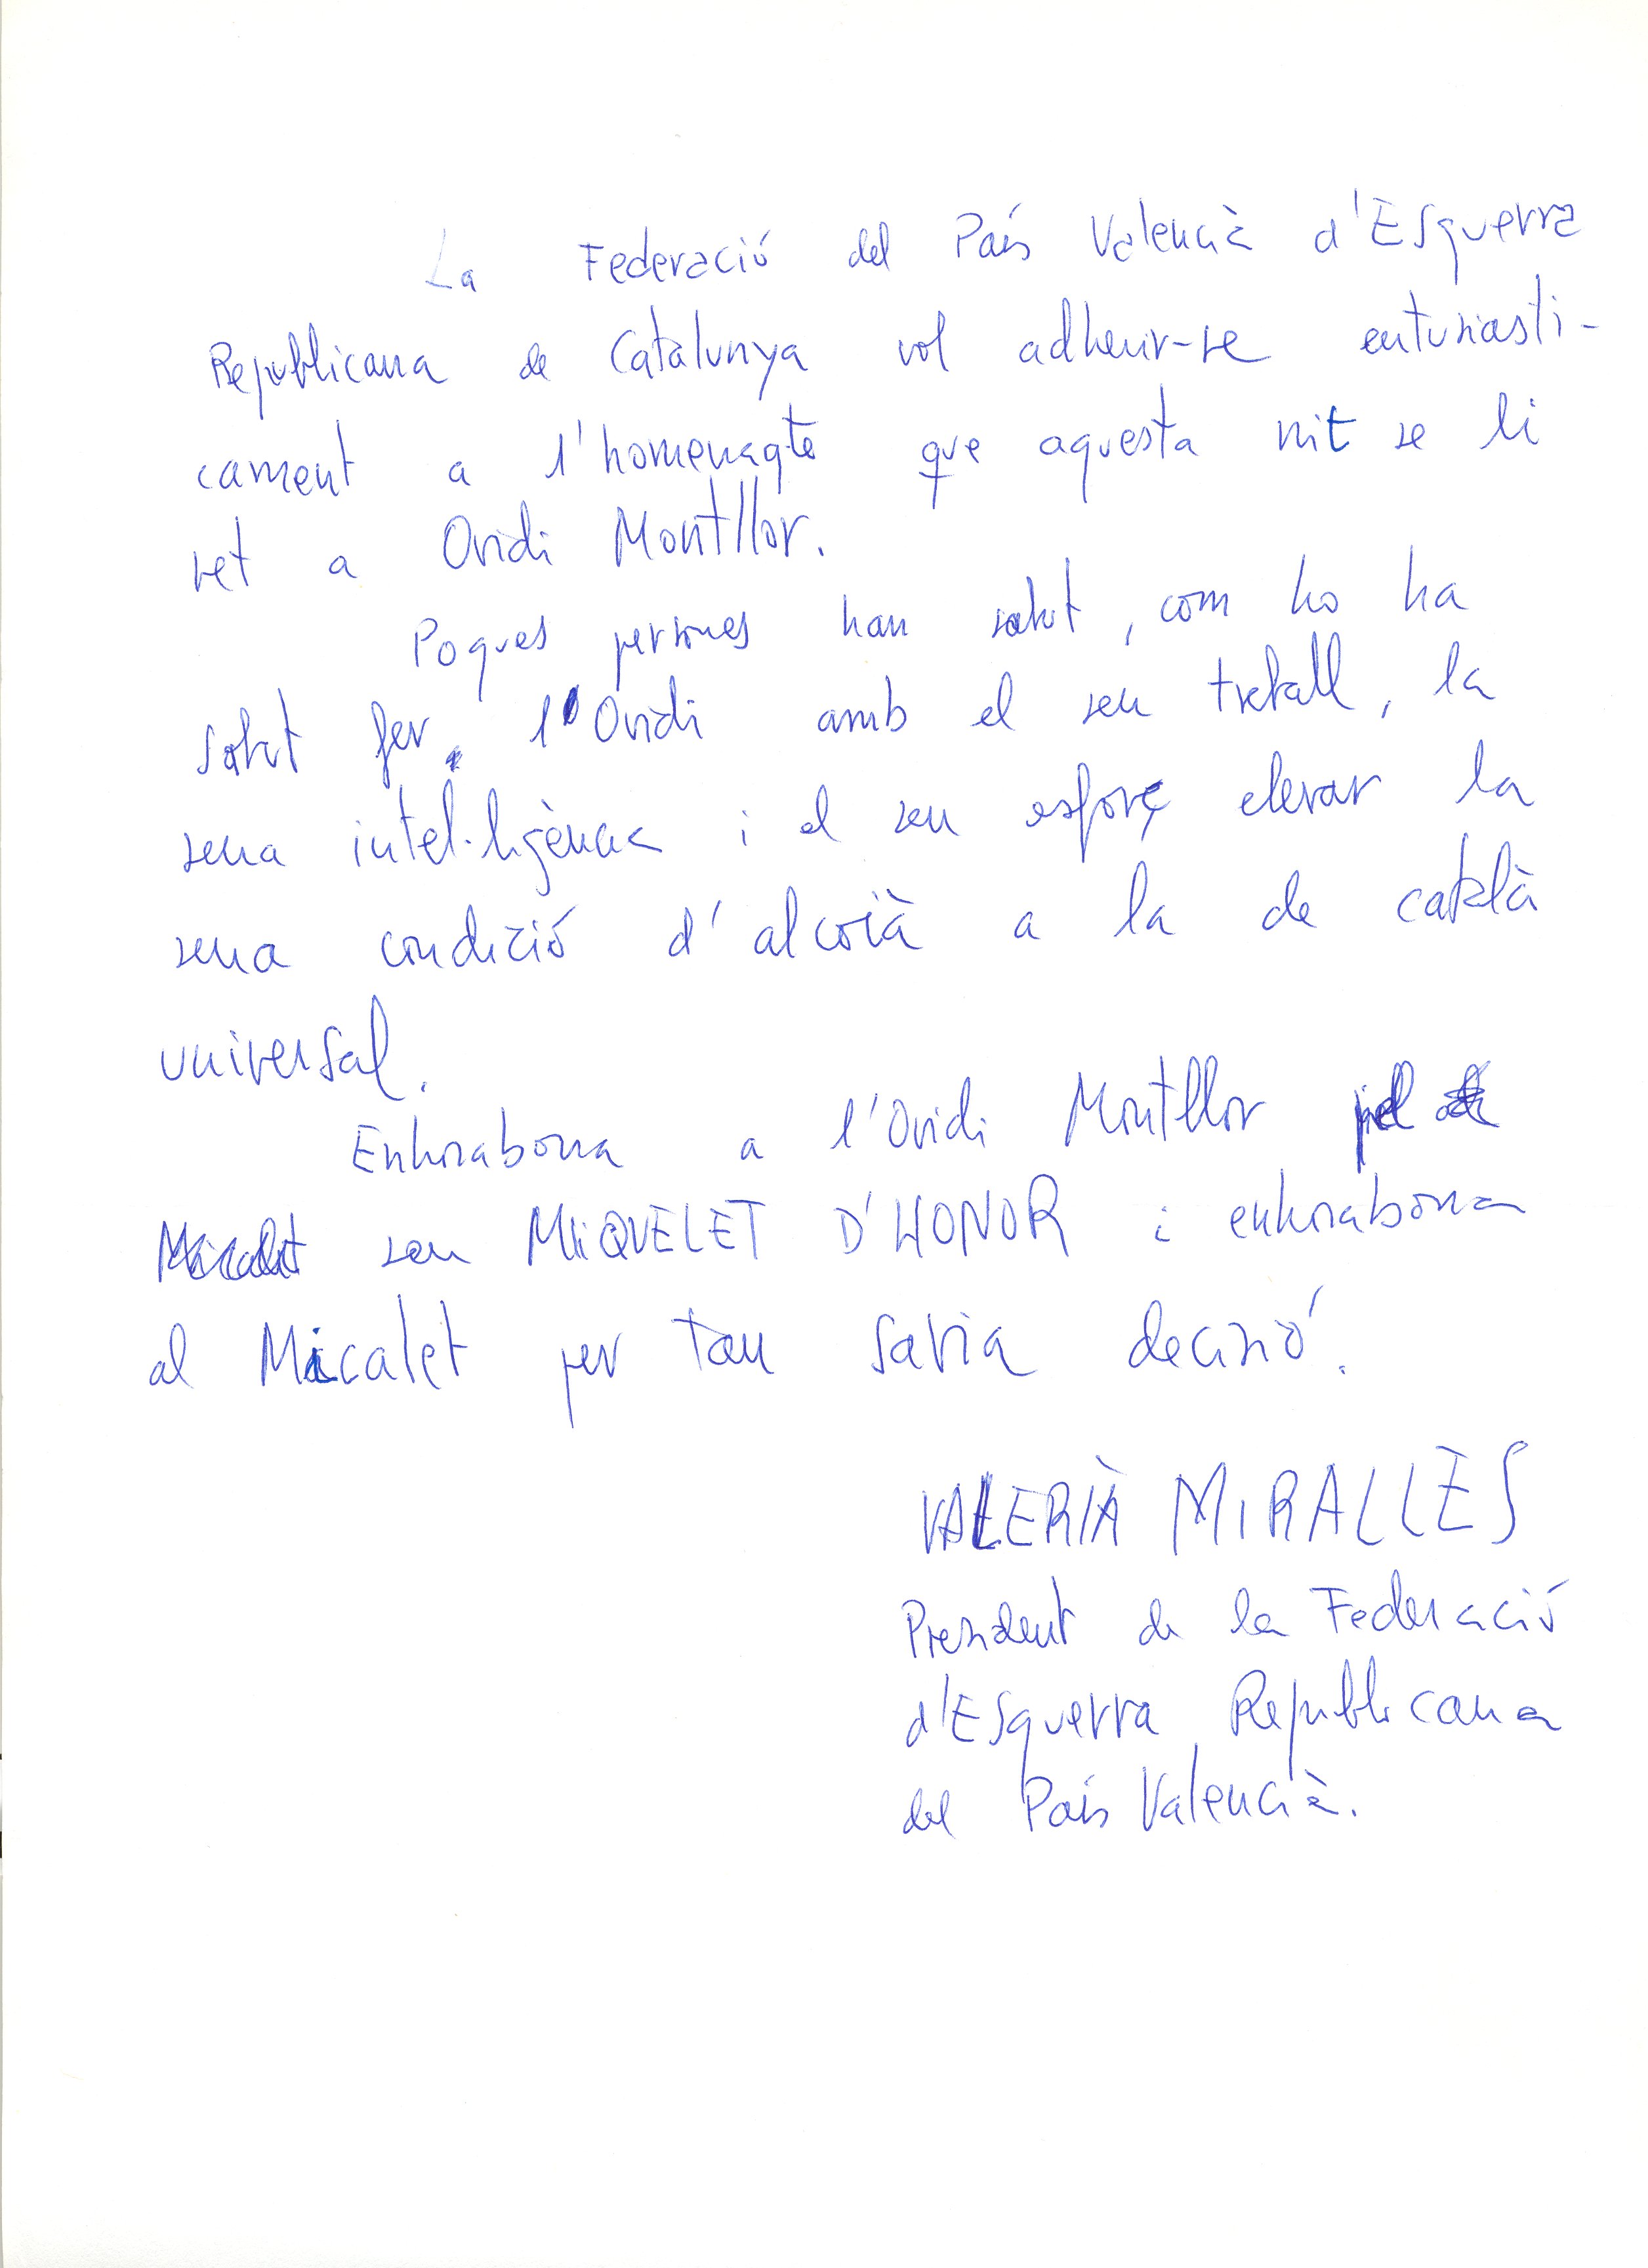 La Federació del País Valencià d'Esquerra
Republicana de Catalunya vol adherir-se entusiasti-
cament a l'homenagte que aquesta nit se li
ret a Ovidi Montllor.
Poques persones han sabut, com ho ha
sabut fer, l'Ovidi amb el seu treball, la
seua intel·ligència i el seu esforç elevar la
seua condició d'alcoià a la de català
universal.
Enhorabona a l'Ovidi Montllor pel
seu MIQUELET D'HONOR i enhorabona
al Micalet per tan savia decisió.
VALERIÀ MIRALLÈS
President de la Federació
d'Esquerra Republicana
del País Valencià.